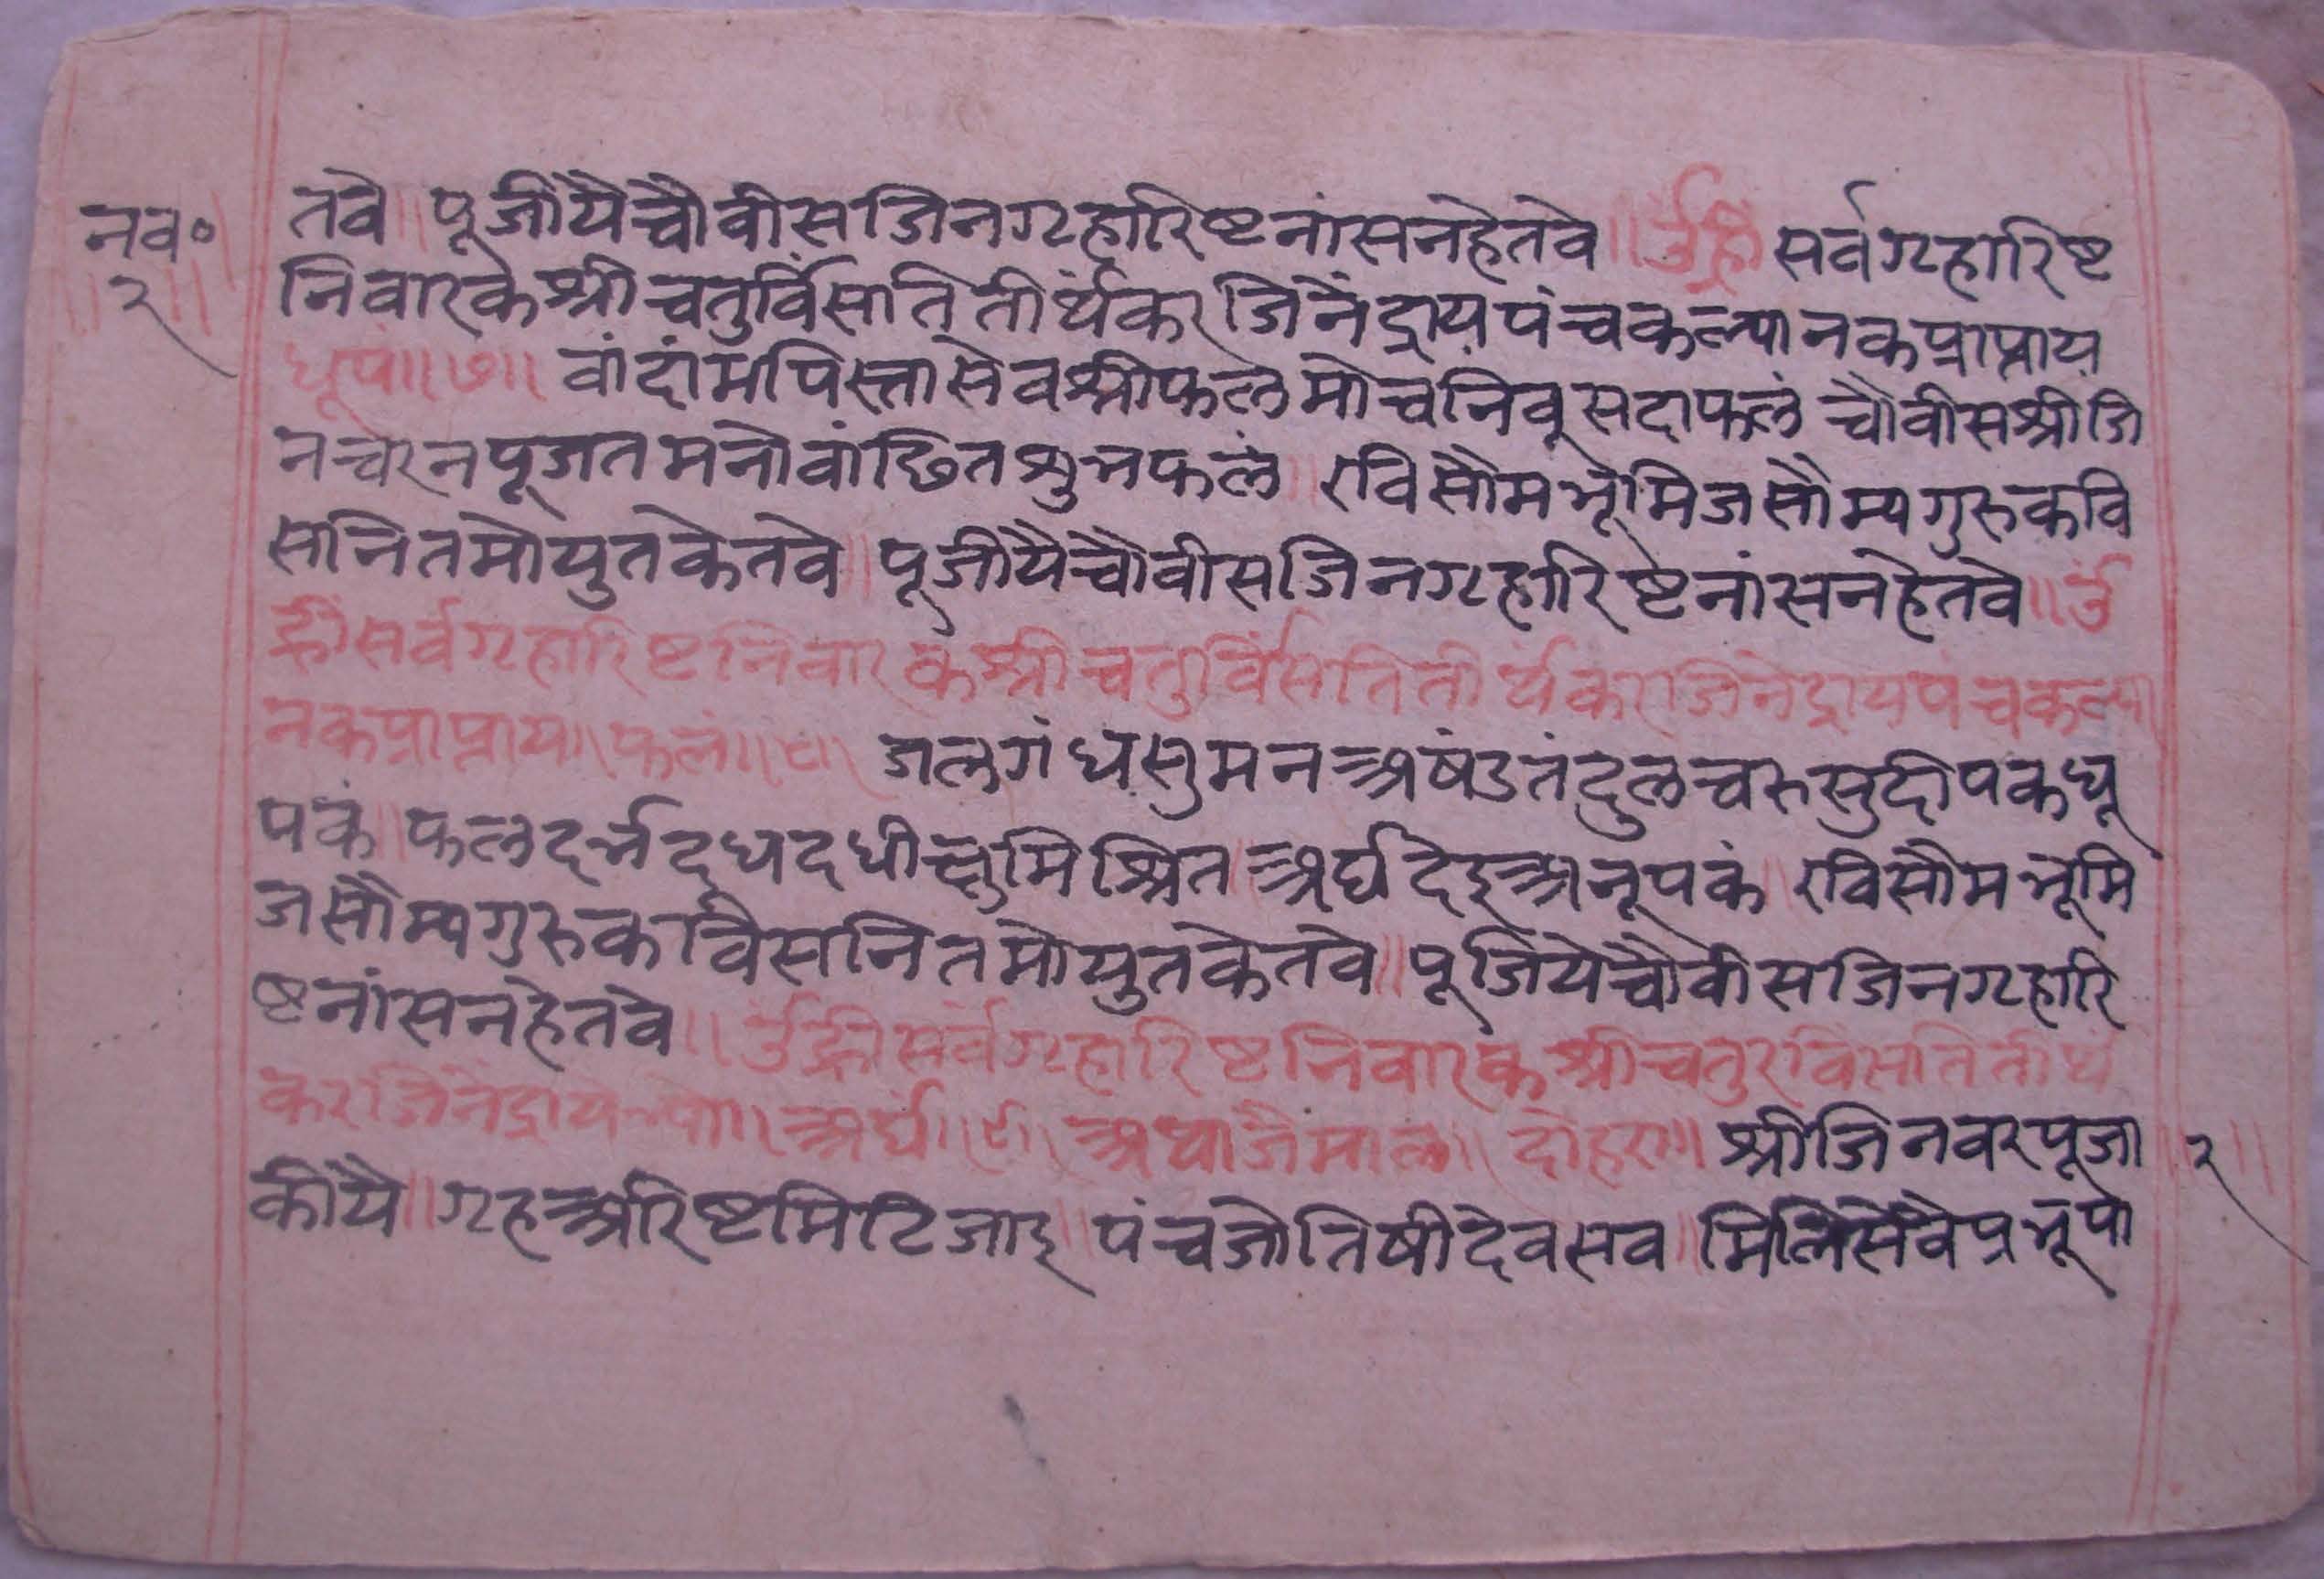 नव॰
२
तवे॥ पूजीयै चौवीस जिन ग्रहारिष्ट नांसन हेतवे॥ ॐ ह्रीं सर्व ग्रहारिष्ट
निवारके श्री चतुर्विंसति तीर्थंकर जिनेंद्राय पंचकल्यानक प्राप्ताय
धूपं॥७॥ वांदांम पिस्ता सेव श्रीफल मोच निबू सदाफलं चौवीस श्री जि
न चरन पूजत मनोवांछित शुभ फलं॥ रवि सौम भूमिज सौम्य गुरु कवि
सनि तमोयुत केतवे॥ पूजीयै चौवीस जिन ग्रहारिष्ट नांसन हेतवे॥ ॐ
ह्रीं सर्व ग्रहारिष्ट निवारक श्री चतुर्विंसति तीर्थंकर जिनेंद्राय पंचकल्या
नक प्राप्ताय॥ फलं॥८॥ जल गंध सुमन अषंड तंदुल चरु सुदीपक धू
पकं॥ फल दर्भ दूध दधी सुमिश्रित॥ अर्घ देइ अनूपकं॥ रवि सौम भूमि
ज सौम्य गुरु कवि सनि तमोयुत केतवे॥ पूजिये चौवीस जिन ग्रहारि
ष्ट नांसन हेतवे॥ ॐ ह्रीं सर्व ग्रहारिष्ट निवारक श्री चतुरविंसति तीर्थं
कर जिनेंद्राय अर्घं॥९॥ अथ जैमाल॥ दोहरा॥ श्री जिनवर पूजा
कीयै॥ ग्रह अरिष्ट मिटि जाइ॥ पंच जोतिषी देव सव॥ मिलि सेवै प्रभू पा
२